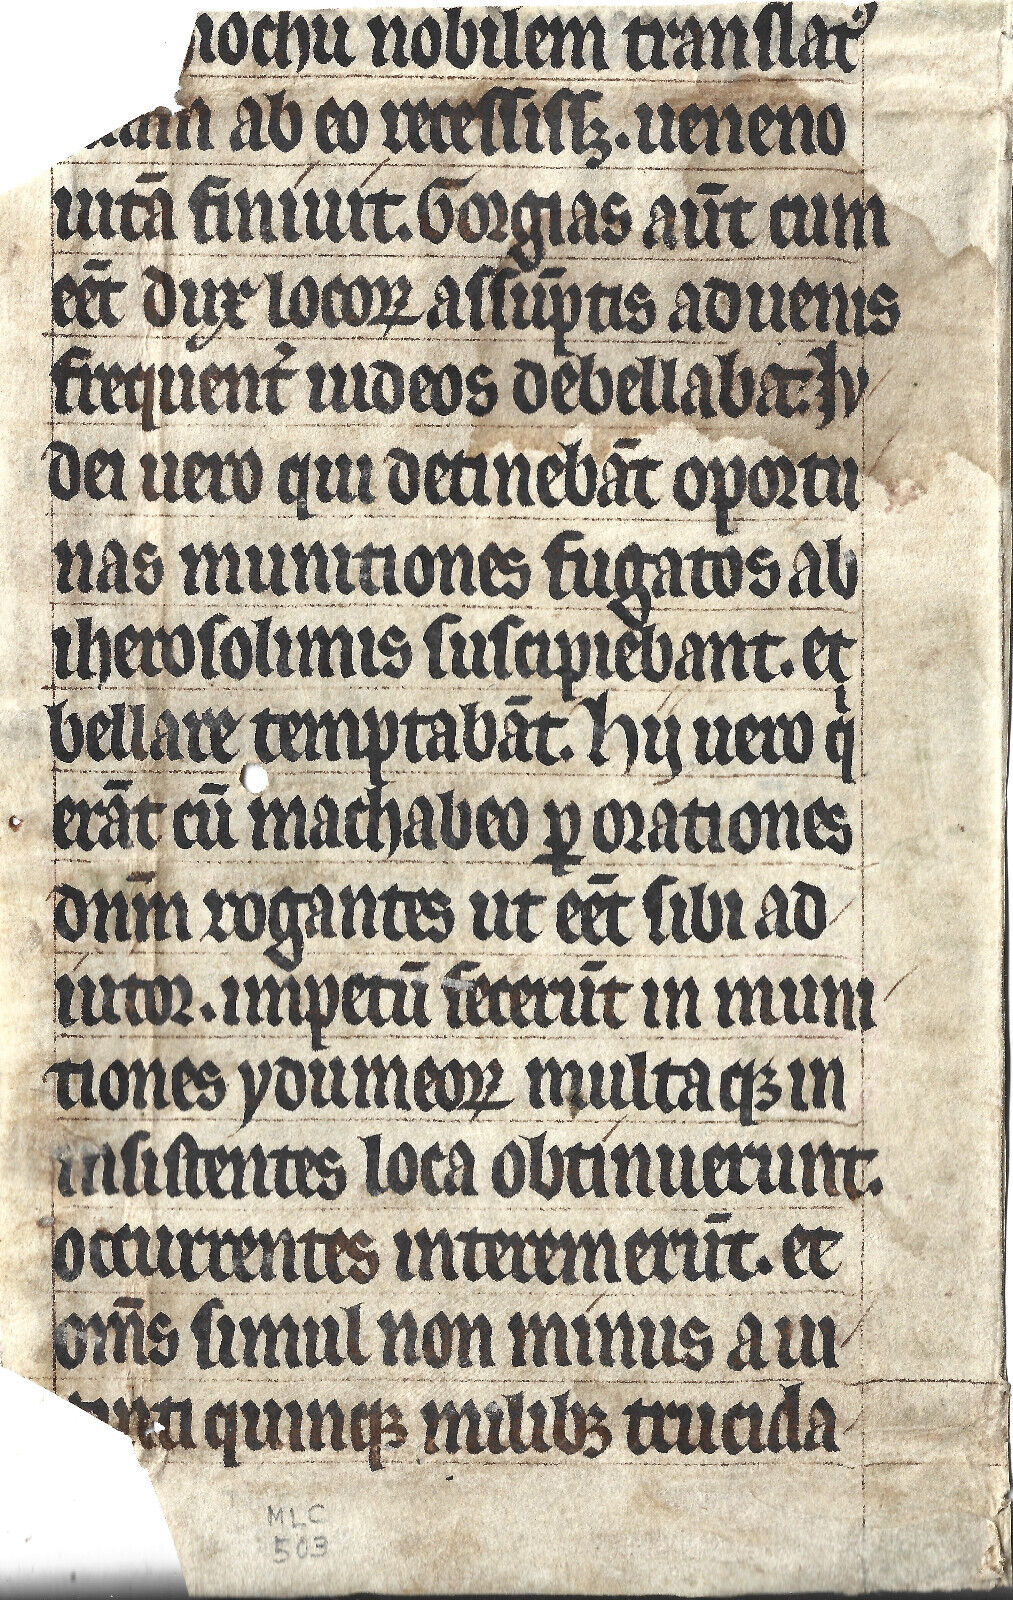 iochu nobilem translat᾽
etiam ab eo recessissꝫ. ueneno
uitā finiuit. Gorgias aūt cum
eēt dux locoꝝ assūptis aduenis
frequent᾽ iudeos debellabat. Iu
dei uero qui detinebāt oportu
nas munitiones fugatos ab
iherosolimis suscipiebant. et
bellare temptabāt. hij uero qͥ
erāt cū machabeo ꝑ orationes
dn̄m rogantes ut eēt sibi ad
iutor. impetū fecerūt in muni
tiones ydumeoꝝ multaqꝫ in
insistentes loca obtinuerunt.
occurrentes interemerūt. et
om̄s simul non minus a ui
ginti quinqꝫ milibꝫ trucida
MLC
503